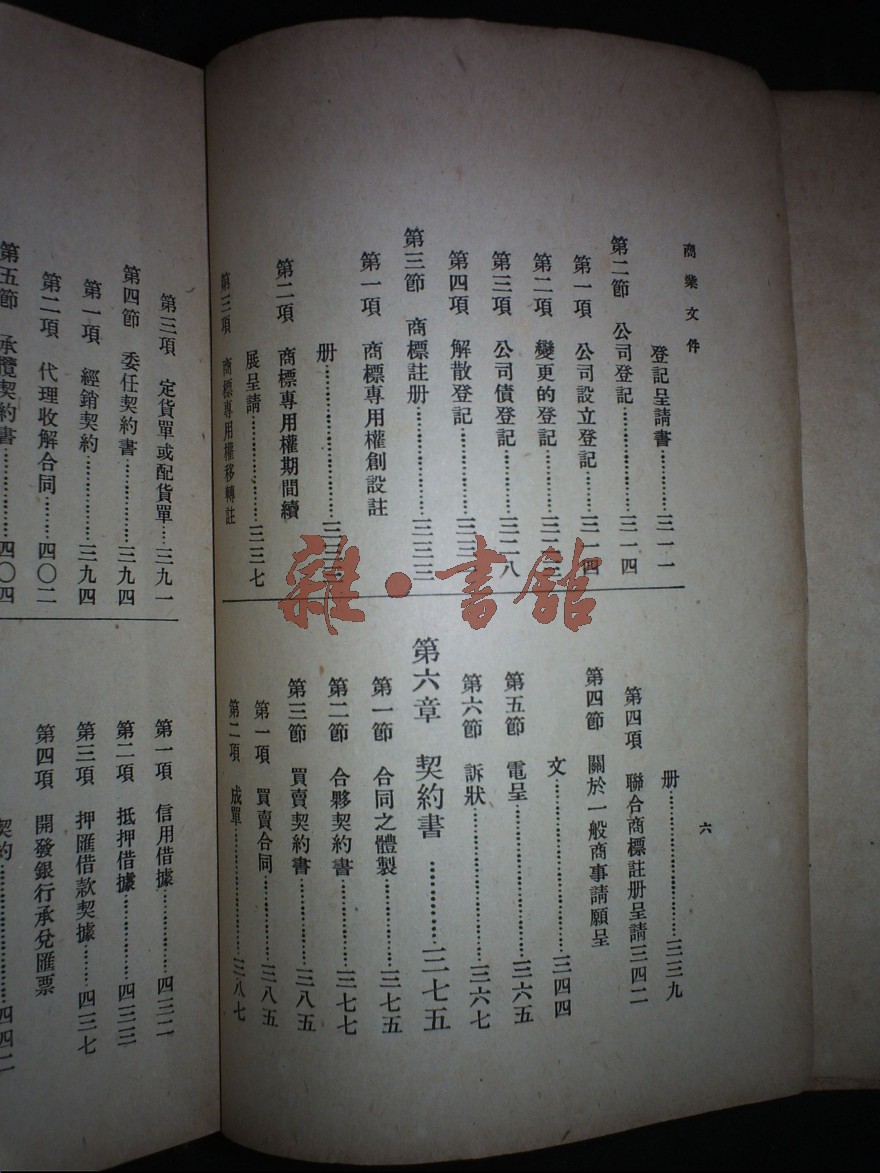 商業文件
登記呈請書…………三一一
第二節　公司登記…………三一四
第一項　公司設立登記………三一四
第二項　變更的登記…………三二三
第三項　公司債登記…………三二八
第四項　解散登記…………三三一
第三節　商標註册…………三三三
第一項　商標專用權創設註
册…………三三三
第二項　商標專用權期間續
展呈請…………三三七
第三項　商標專用權移轉註
六
册…………三三九
第四項　聯合商標註册呈請三四二
第四節　關於一般商事請願呈
文…………三四四
第五節　電呈…………三六五
第六節　訴狀…………三六七
第六章　契約書…………三七五
第一節　合同之體製………三七五
第二節　合夥契約書………三七七
第三節　買賣契約書………三八五
第一項　買賣合同…………三八五
第二項　成單…………三八七
第三項　定貨單或配貨單……三九一
第四節　委任契約書…………三九四
第一項　經銷契約…………三九四
第二項　代理收解合同……四〇二
第五節　承攬契約書…………四〇四
第一項　信用借據…………四三二
第二項　抵押借據…………四三三
第三項　押匯借款契據………四三七
第四項　開發銀行承兌匯票
契約…………四四二
雜·書館